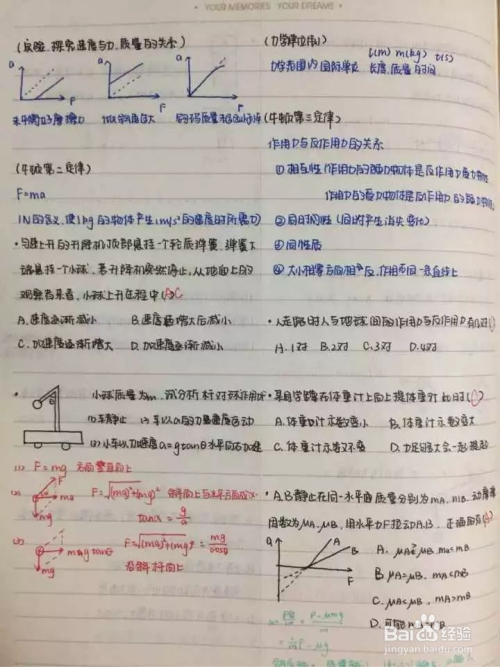 YOUR MEMORIES YOUR DREAMS
(实验:探究速度与力、质量的关系)
a a a
F F F
未平衡好摩擦力
(牛顿第二定律)
F=ma
1N的含义:使1kg的物体产生1m/s²的速度时所需力
·匀速上升的升降机顶部悬挂一个轻质弹簧,弹簧下
端悬挂一个小球,若升降机突然停止,从地面上的
观察者来看,小球上升过程中( )C
A.速度逐渐减小 B.速度先增大后减小
C.加速度逐渐增大 D.加速度逐渐减小
小球质量为m,试分析杆对球作用力
(1)车静止 (2)车以a的加速度运动
(3)小车以加速度a=gtanθ水平向右加速
(1) F=mg 方向竖直向上
(2) F ma mg F=√(ma)²+(mg)²
tanα=g/a
(3) F mgtanθ mg =mg/cosθ
沿斜杆向上
(力学单位制) l(m) m(kg) t(s)
力学范围内国际单位 长度、质量、时间
(牛顿第三定律)
作用力与反作用力的关系
① 相互性
② 同时同性(同时产生消失变化)
③ 同性质
④ 大小相等方向相反,作用在同一直线上
·人走路时人与地球间的作用力与反作用力有几对( )
A.1对 B.2对 C.3对 D.4对
·某同学站在体重计上向上提体重计时( C )
A.体重计示数减小 B.体重计示数增大
C.体重计示数不变 D.力足够大会一起提起
·A、B静止在同一水平面质量分别为mA、mB.动摩擦
因数为μA、μB,用水平力F拉动A、B,正确的有( )
a A B F
A. μA=μB, mA<mB
B. μA=μB, mA<mB
C. μA<μB, mA>mB
D. 可能mA=mB
Baidu经验
jingyan.baidu.com